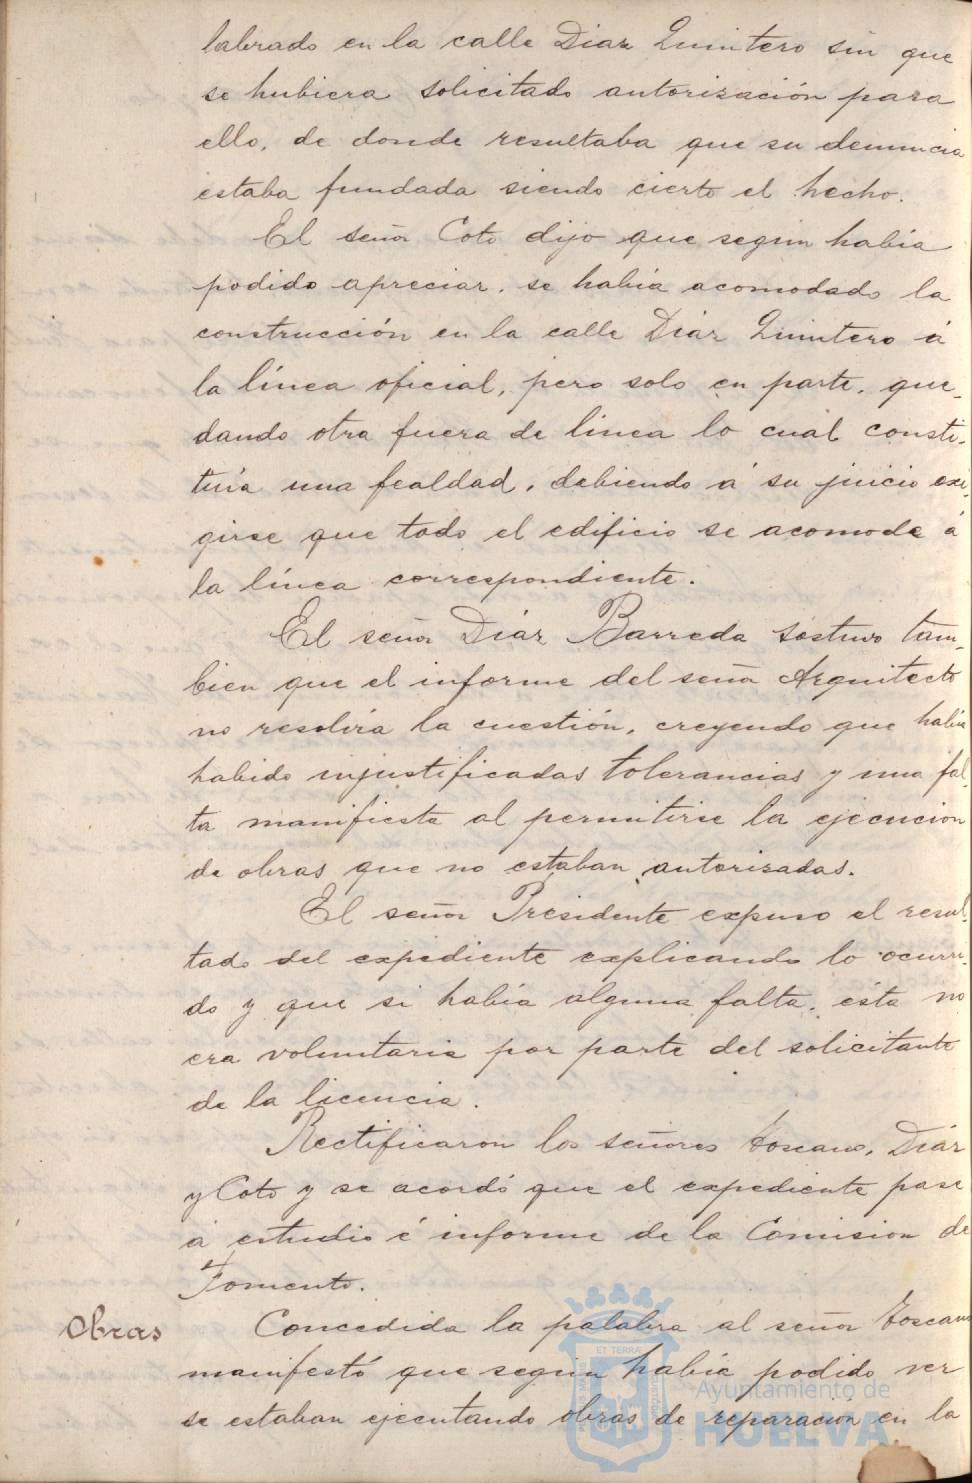 labrado en la calle Diaz Quintero sin que
se hubiera solicitado autorización para
ello, de donde resultaba que su denuncia
estaba fundada siendo cierto el hecho.
El señor Coto dijo que segun había
podido apreciar, se había acomodado la
construcción en la calle Diáz Quintero á
la línea oficial, pero solo en parte, que-
dando otra fuera de linea lo cual consti-
tuía una fealdad, debiendo á su juicio exi-
girse que todo el edificio se acomode á
la línea correspondiente.
El señor Diáz Barreda sostuvo tam-
bien que el informe del señor Arquitecto
no resolvía la cuestión, creyendo que había
habido injustificadas tolerancias y una fal-
ta manifiesta al permitirse la ejecución
de obras que no estaban autorizadas.
El señor Presidente expuso el resul-
tado del expediente explicando lo ocurri-
do y que si había alguna falta, ésta no
era voluntaria por parte del solicitante
de la licencia.
Rectificaron los señores Toscano, Diáz
y Coto y se acordó que el expediente pase
á estudio é informe de la Comision de
Fomento.
Obras
Concedida la palabra al señor Toscano
manifestó que segun había podido ver
se estaban ejecutando obras de reparación en la
ET TERRA
Ayuntamiento de
HUELVA